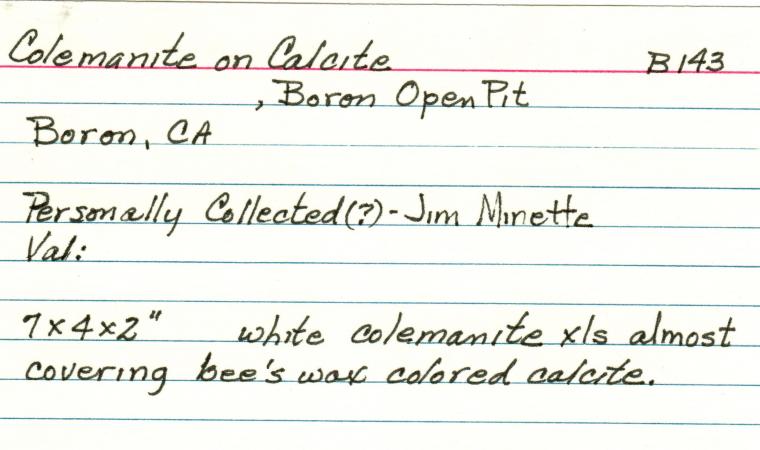 Colemanite on Calcite B143
, Boron Open Pit
Boron, CA
Personally Collected(?)- Jim Minette
Val:
7x4x2" white colemanite xls almost
covering bee's wax colored calcite.